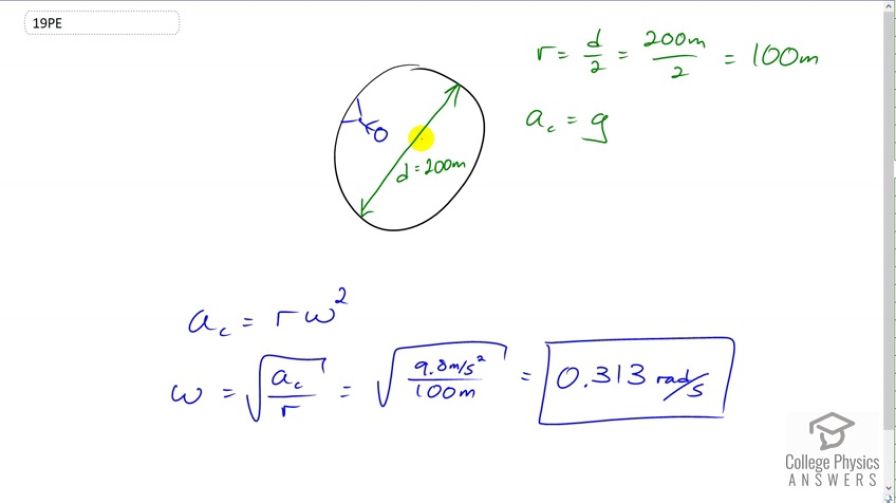 19PE
r = d/2 = 200m/2 = 100m
a_c = g
d = 200m
a_c = rω²
ω = √(a_c/r) = √(9.8m/s²/100m) = 0.313 rad/s
College Physics
ANSWERS